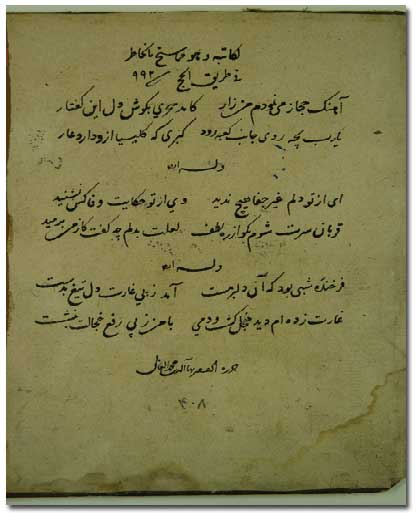 لکاتبه و هو مما سنح بالخاطر
فی طریق الحج سنه ۹۹۲
آهنک حجاز می نمودم من زار کامد سحری بکوش دل این کفتار
یارب بچه روی جانب کعبه رود کبری که کلیسیا ازو دارد عار
وله ایضا
ای از تو دلم غیر جفا هیچ ندید وی از تو حکایت وفا کس نشنید
قربان سرت شوم بکو از ره لطف لعلت بدلم چه کفت کز من برمید
وله ایضا
فرخنده شبی بود که آن دلبر مست آمد ز پی غارت دل تیغ بدست
غارت زده ام دید خجل کشت و دمی با من ز پی رفع خجالت بنشست
حرره الفقیر بهاء الدین محمد العاملی
۴۰۸